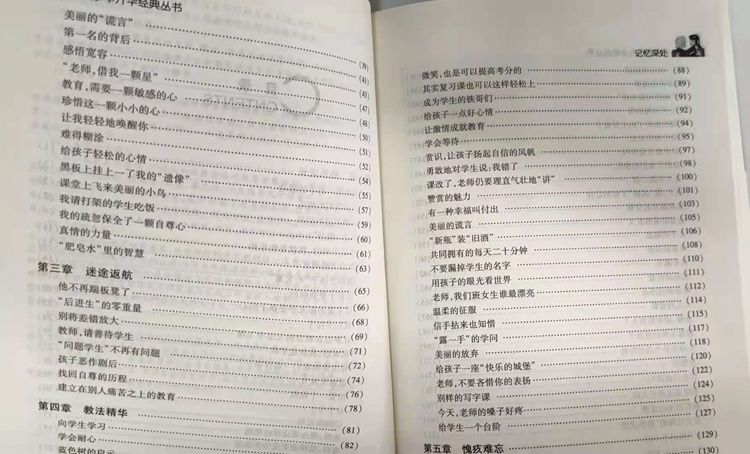 开华经典丛书
美丽的“谎言”……(39)
第一名的背后……(41)
感悟宽容……(43)
“老师,借我一颗星”……(47)
教育,需要一颗敏感的心……(48)
珍惜这一颗小小的心……(50)
让我轻轻地唤醒你……(51)
难得糊涂……(52)
给孩子轻松的心情……(54)
黑板上挂上一了我的“遗像”……(55)
课堂上飞来美丽的小鸟……(57)
我请打架的学生吃饭……(59)
我的疏忽保全了一颗自尊心……(60)
真情的力量……(61)
“肥皂水”里的智慧……(63)
第三章 迷途返航
他不再踹板凳了……(65)
“后进生”的零重量……(66)
别将差错放大……(68)
教师,请善待学生……(71)
“问题学生”不再有问题……(72)
孩子恶作剧后……(74)
找回自尊的历程……(76)
建立在别人痛苦之上的教育……(78)
第四章 教法精华
向学生学习……(81)
学会耐心……(82)
蓝色树的启示
记忆深处
微笑,也是可以提高考分的……(88)
其实复习课也可以这样轻松上……(89)
成为学生的铁哥们……(91)
给孩子一点好心情……(92)
让激情成就教育……(94)
学会等待……(95)
赏识,让孩子扬起自信的风帆……(97)
勇敢地对学生说:我错了……(98)
课改了,老师仍要理直气壮地“讲”……(100)
赞赏的魅力……(101)
有一种幸福叫付出……(103)
美丽的谎言……(105)
“新瓶”装“旧酒”……(106)
共同拥有的每天二十分钟……(108)
不要漏掉学生的名字……(110)
用孩子的眼光看世界……(111)
老师,我们班女生谁最漂亮……(112)
温柔的征服……(114)
信手拈来也知惜……(115)
“露一手”的学问……(117)
美丽的放弃……(118)
给孩子一座“快乐的城堡”……(120)
老师,不要吝惜你的表扬……(122)
别样的写字课……(124)
今天,老师的嗓子好疼……(125)
给学生一个台阶……(127)
第五章 愧疚难忘
(129)
(130)